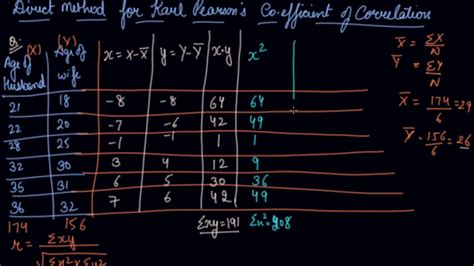 Direct Method for Karl Pearson's Co-efficient of Correlation
Q: (X) (Y)
Age of Husband Age of wife x = X-X̄ y = Y-Ȳ x·y x²
21 18 -8 -8 64 64
22 20 -7 -6 42 49
28 25 -1 -1 1 1
32 30 3 4 12 9
35 31 6 5 30 36
36 32 7 6 42 49
174 156 Σxy=191 Σx²=208
r = Σxy
√Σx² × Σy²
X̄ = ΣX/N
Ȳ = ΣY/N
X̄ = 174/6 = 29
Ȳ = 156/6 = 26